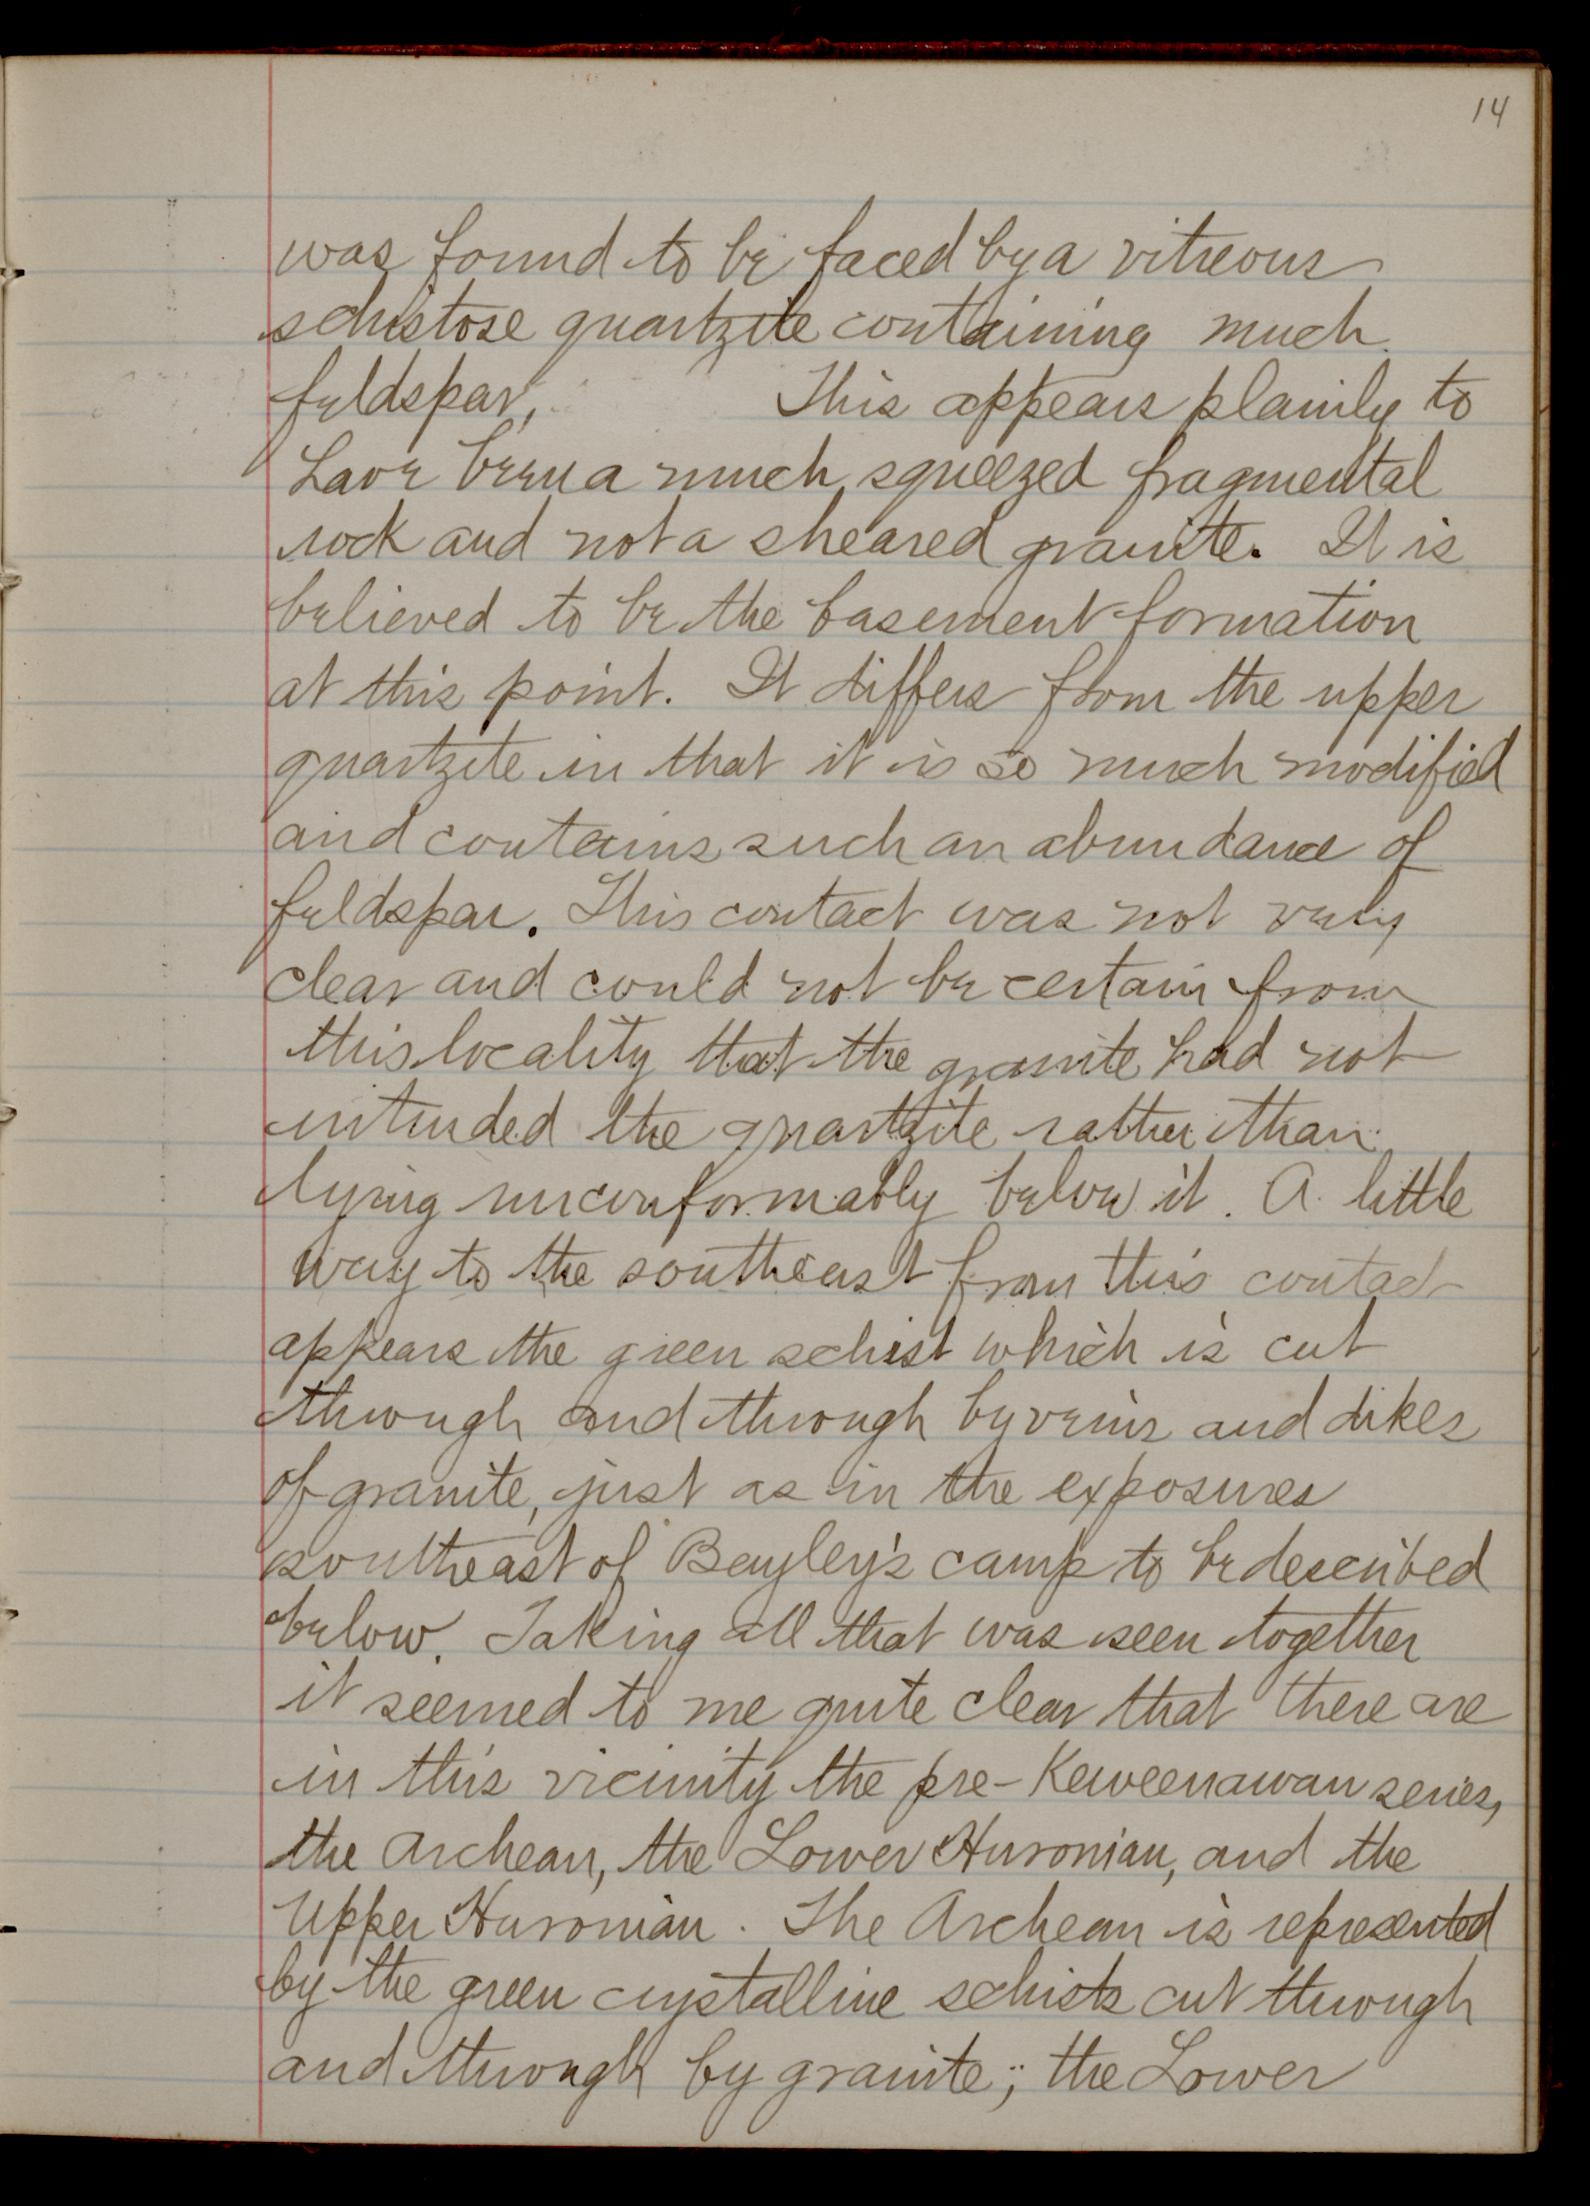 14
was found to be faced by a vitreous
schistose quartzite containing much
feldspar, This appears plainly to
have been a much squeezed fragmental
rock and not a sheared granite. It is
believed to be the basement formation
at this point. It differs from the upper
quartzite in that it is so much modified
and contains such an abundance of
feldspar. This contact was not very
clear and could not be certain from
this locality that the granite had not
intruded the quartzite rather than
lying unconformably below it. A little
way to the southeast from this contact
appears the green schist which is cut
through and through by veins and dikes
of granite, just as in the exposures
southeast of Bayley's camp to be described
below. Taking all that was seen together
it seemed to me quite clear that there are
in this vicinity the pre-Keweenawan series,
the Archean, the Lower Huronian, and the
Upper Huronian. The Archean is represented
by the green crystalline schists cut through
and through by granite; the Lower